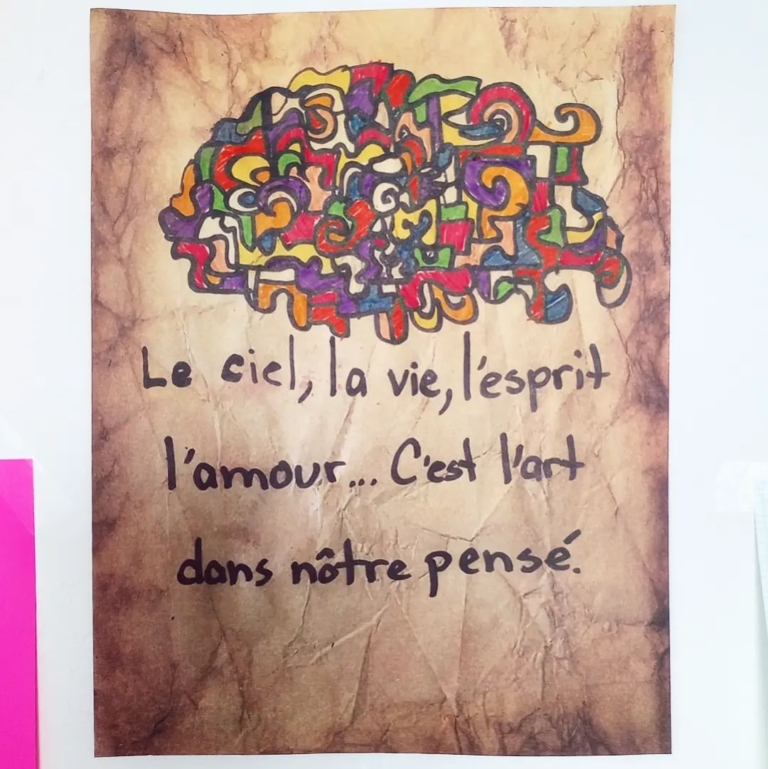 Le ciel, la vie, l'esprit
l'amour... C'est l'art
dans nôtre pensé.